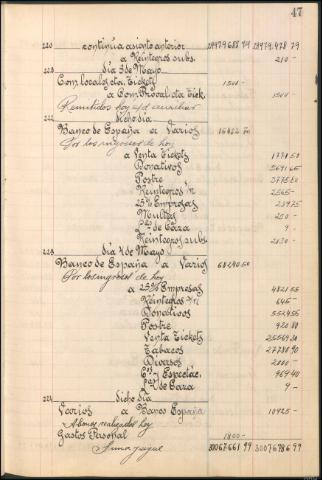 47
220 continúa asiento anterior 29979688 79 29979.478 79
a Reintegros subs. 210 -
día 3 de Mayo
Com. local cta. Tickets 1500 -
a Com. Proval. cta Tick. 1500
Remitidos hoy
222 dicho día
Banco de España a Varios
Por los ingresos de hoy
a Venta Tickets
Donativos 5691.65
Postre
Reintegros
25% Empresas
Multas 250 -
de Caza 9 -
Reintegros subs. 2030 -
223 día 4 de Mayo
Banco de España a Varios 68240.50
Por los ingresos de hoy
a 25% Empresas 4821.55
Reintegros 645 -
Donativos
Postre 920.80
Venta Tickets
Tabacos 27780.90
Diversos 2000 -
Espectác. 969.40
de Caza 9 -
224 dicho día
Varios a Banco España 10925 -
Abonos realizados hoy
Gastos Personal 1800 -
Suma y sigue 30067661 79 30076786 79